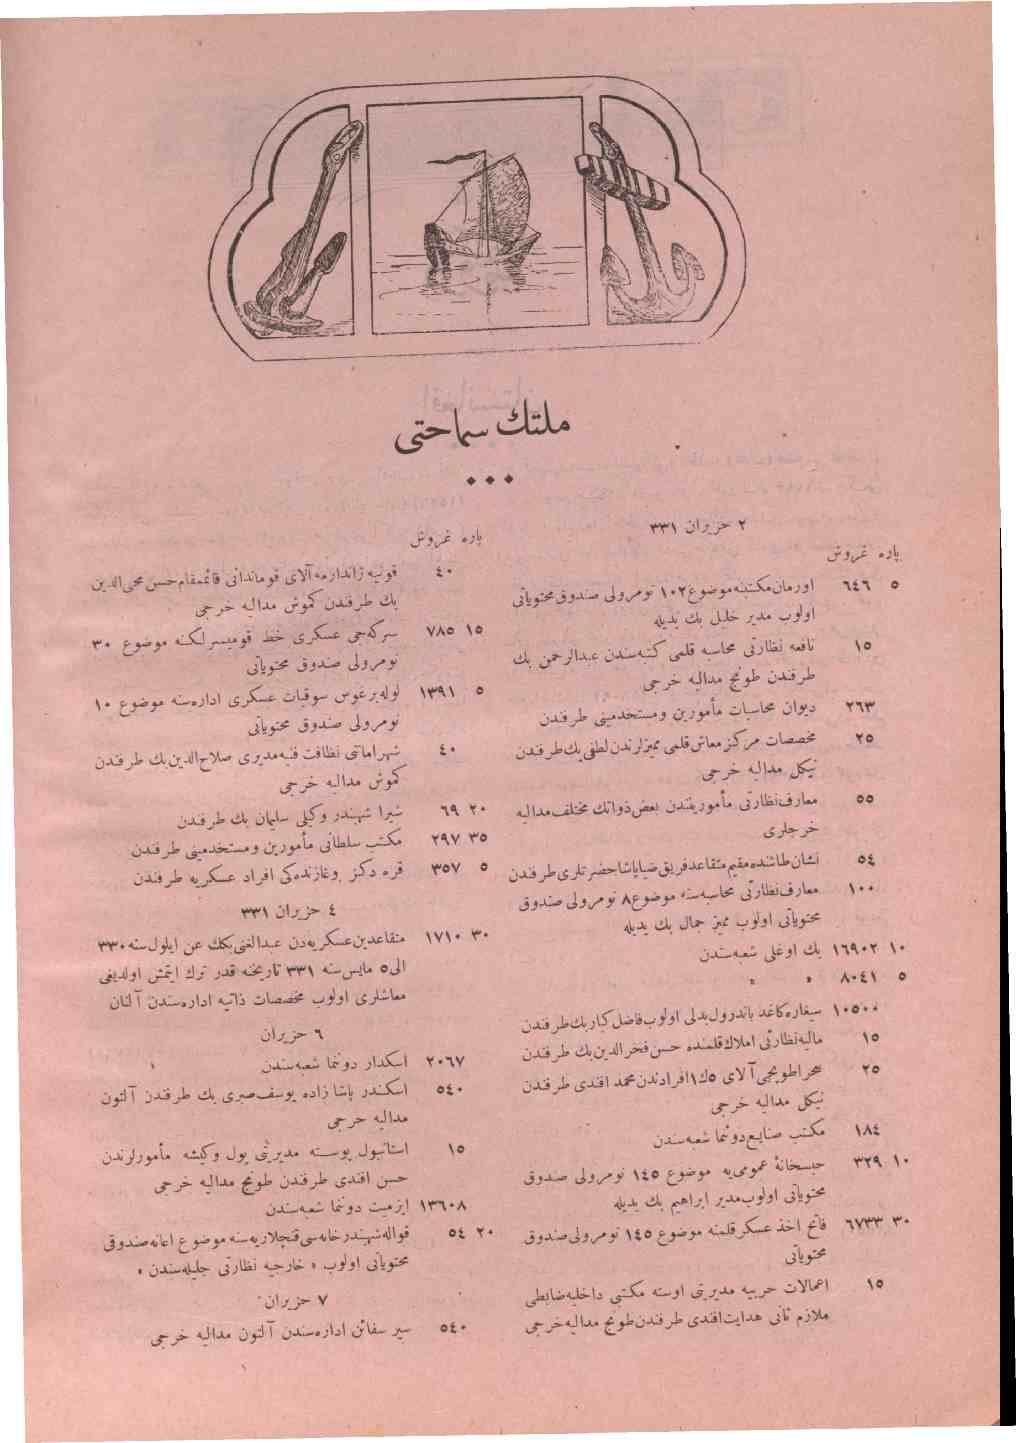 ملتك سماحتی
٢ حزیران ٣٣١
پاره غروش
٥ ٦٤٦ اورمان‌مكتبنه‌موضوع١٠٢ نومرولی صندوق‌محتویاتی
اولوب مدیر خلیل بك یدیله
١٥ نافعه نظارتی محاسبه قلمی كتبه‌سندن عبدالرحمن بك
طرفندن طونج مدالیه خرجی
٢٦٣ دیوان محاسبات مأمورین ومستخدمینی طرفندن
٢٥ مخصصات مركز معاش قلمی ممیزلرندن لطفی بك طرفندن
نیكل مدالیه خرجی
٥٥ معارف‌نظارتی مأموریتندن بعض ذواتك مختلف‌مدالیه
خرجلری
٥٤ نشان‌طاشنده‌مقیم‌متقاعدفریق‌ضیاپاشاحضرتلری‌طرفندن
١٠٠ معارف‌نظارتی محاسبه‌سنه موضوع٨ نومرولی صندوق
محتویاتی اولوب ممیز جمال بك یدیله
١٠ ١٦٩٠٢ بك اوغلی شعبه‌سندن
٥ ٨٠٤١ » »
١٠٥٠٠ سیغاره‌كاغد باندرول‌بدلی اولوب‌فاضل‌كبار بك‌طرفندن
١٥ مالیه‌نظارتی املاك‌قلمنده حسن فخرالدین‌بك طرفندن
٢٥ صحراطوپجی آلای ٥ك١افرادندن‌محمد افندی طرفندن
نیكل مدالیه خرجی
١٨٤ مكتب صنایع‌دوننما شعبه‌سندن
١٠ ٣٢٩ حبسخانۀ عمومی‌یه موضوع ١٤٥ نومرولی صندوق
محتویاتی اولوب‌مدیر ابراهیم بك یدیله
٣٠ ٦٧٣٣ فاتح اخذ عسكر قلمنه موضوع ١٤٥ نومرولی‌صندوق
محتویاتی
١٥ اعمالات حربیه مدیریتی اوسته مكتبی داخلیه‌ضابطی
ملازم ثانی هدایت‌افندی طرفندن‌طونج مدالیه‌خرجی
پاره غروش
٤٠ قونیه ژاندارمه آلای قوماندانی قائممقام‌حسن محی‌الدین
بك طرفندن كموش مدالیه خرجی
١٥ ٧٨٥ سركه‌جی عسكری خط قومیسرلكنه موضوع ٣٠
نومرولی صندوق محتویاتی
٥ ١٣٩١ لوله‌برغوس سوقیات عسكری اداره‌سنه موضوع ١٠
نومرولی صندوق محتویاتی
٤٠ شهرامانتی نظافت فنیه‌مدیری صلاح‌الدین‌بك طرفندن
كموش مدالیه خرجی
٢٠ ٦٩ شیرا شهبندر وكیلی سلیمان بك طرفندن
٣٥ ٢٩٧ مكتب سلطانی مأمورین ومستخدمینی طرفندن
٥ ٣٥٧ قره دكز بوغازنده‌كی افراد عسكریه طرفندن
٤ حزیران ٣٣١
٣٠ ١٧١٠ متقاعدین‌عسكریه‌دن عبدالغنی‌بكك عن ایلول‌سنه‌٣٣٠
الی٥ مایس‌سنه ٣٣١ تاریخنه قدر ترك ایتمش اولدیغی
معاشلری اولوب مخصصات ذاتیه اداره‌سندن آلنان
٦ حزیران
٢٠٦٧ اسكدار دوننما شعبه‌سندن
٥٤٠ اسكندر پاشا زاده یوسف‌صبری بك طرفندن آلتون
مدالیه خرجی
١٥ استانبول پوسته مدیریتی پول وكیشه مأمورلرندن
حسن افندی طرفندن طونج مدالیه خرجی
١٣٦٠٨ ازمیت دوننما شعبه‌سندن
٢٠ ٥٤ قواله‌شهبندرخانه‌سی‌قنچلاریه‌سنه موضوع اعانه‌صندوقی
محتویاتی اولوب « خارجیه نظارتی جلیله‌سندن »
٧ حزیران
٥٤٠ سیر سفائن اداره‌سندن آلتون مدالیه خرجی